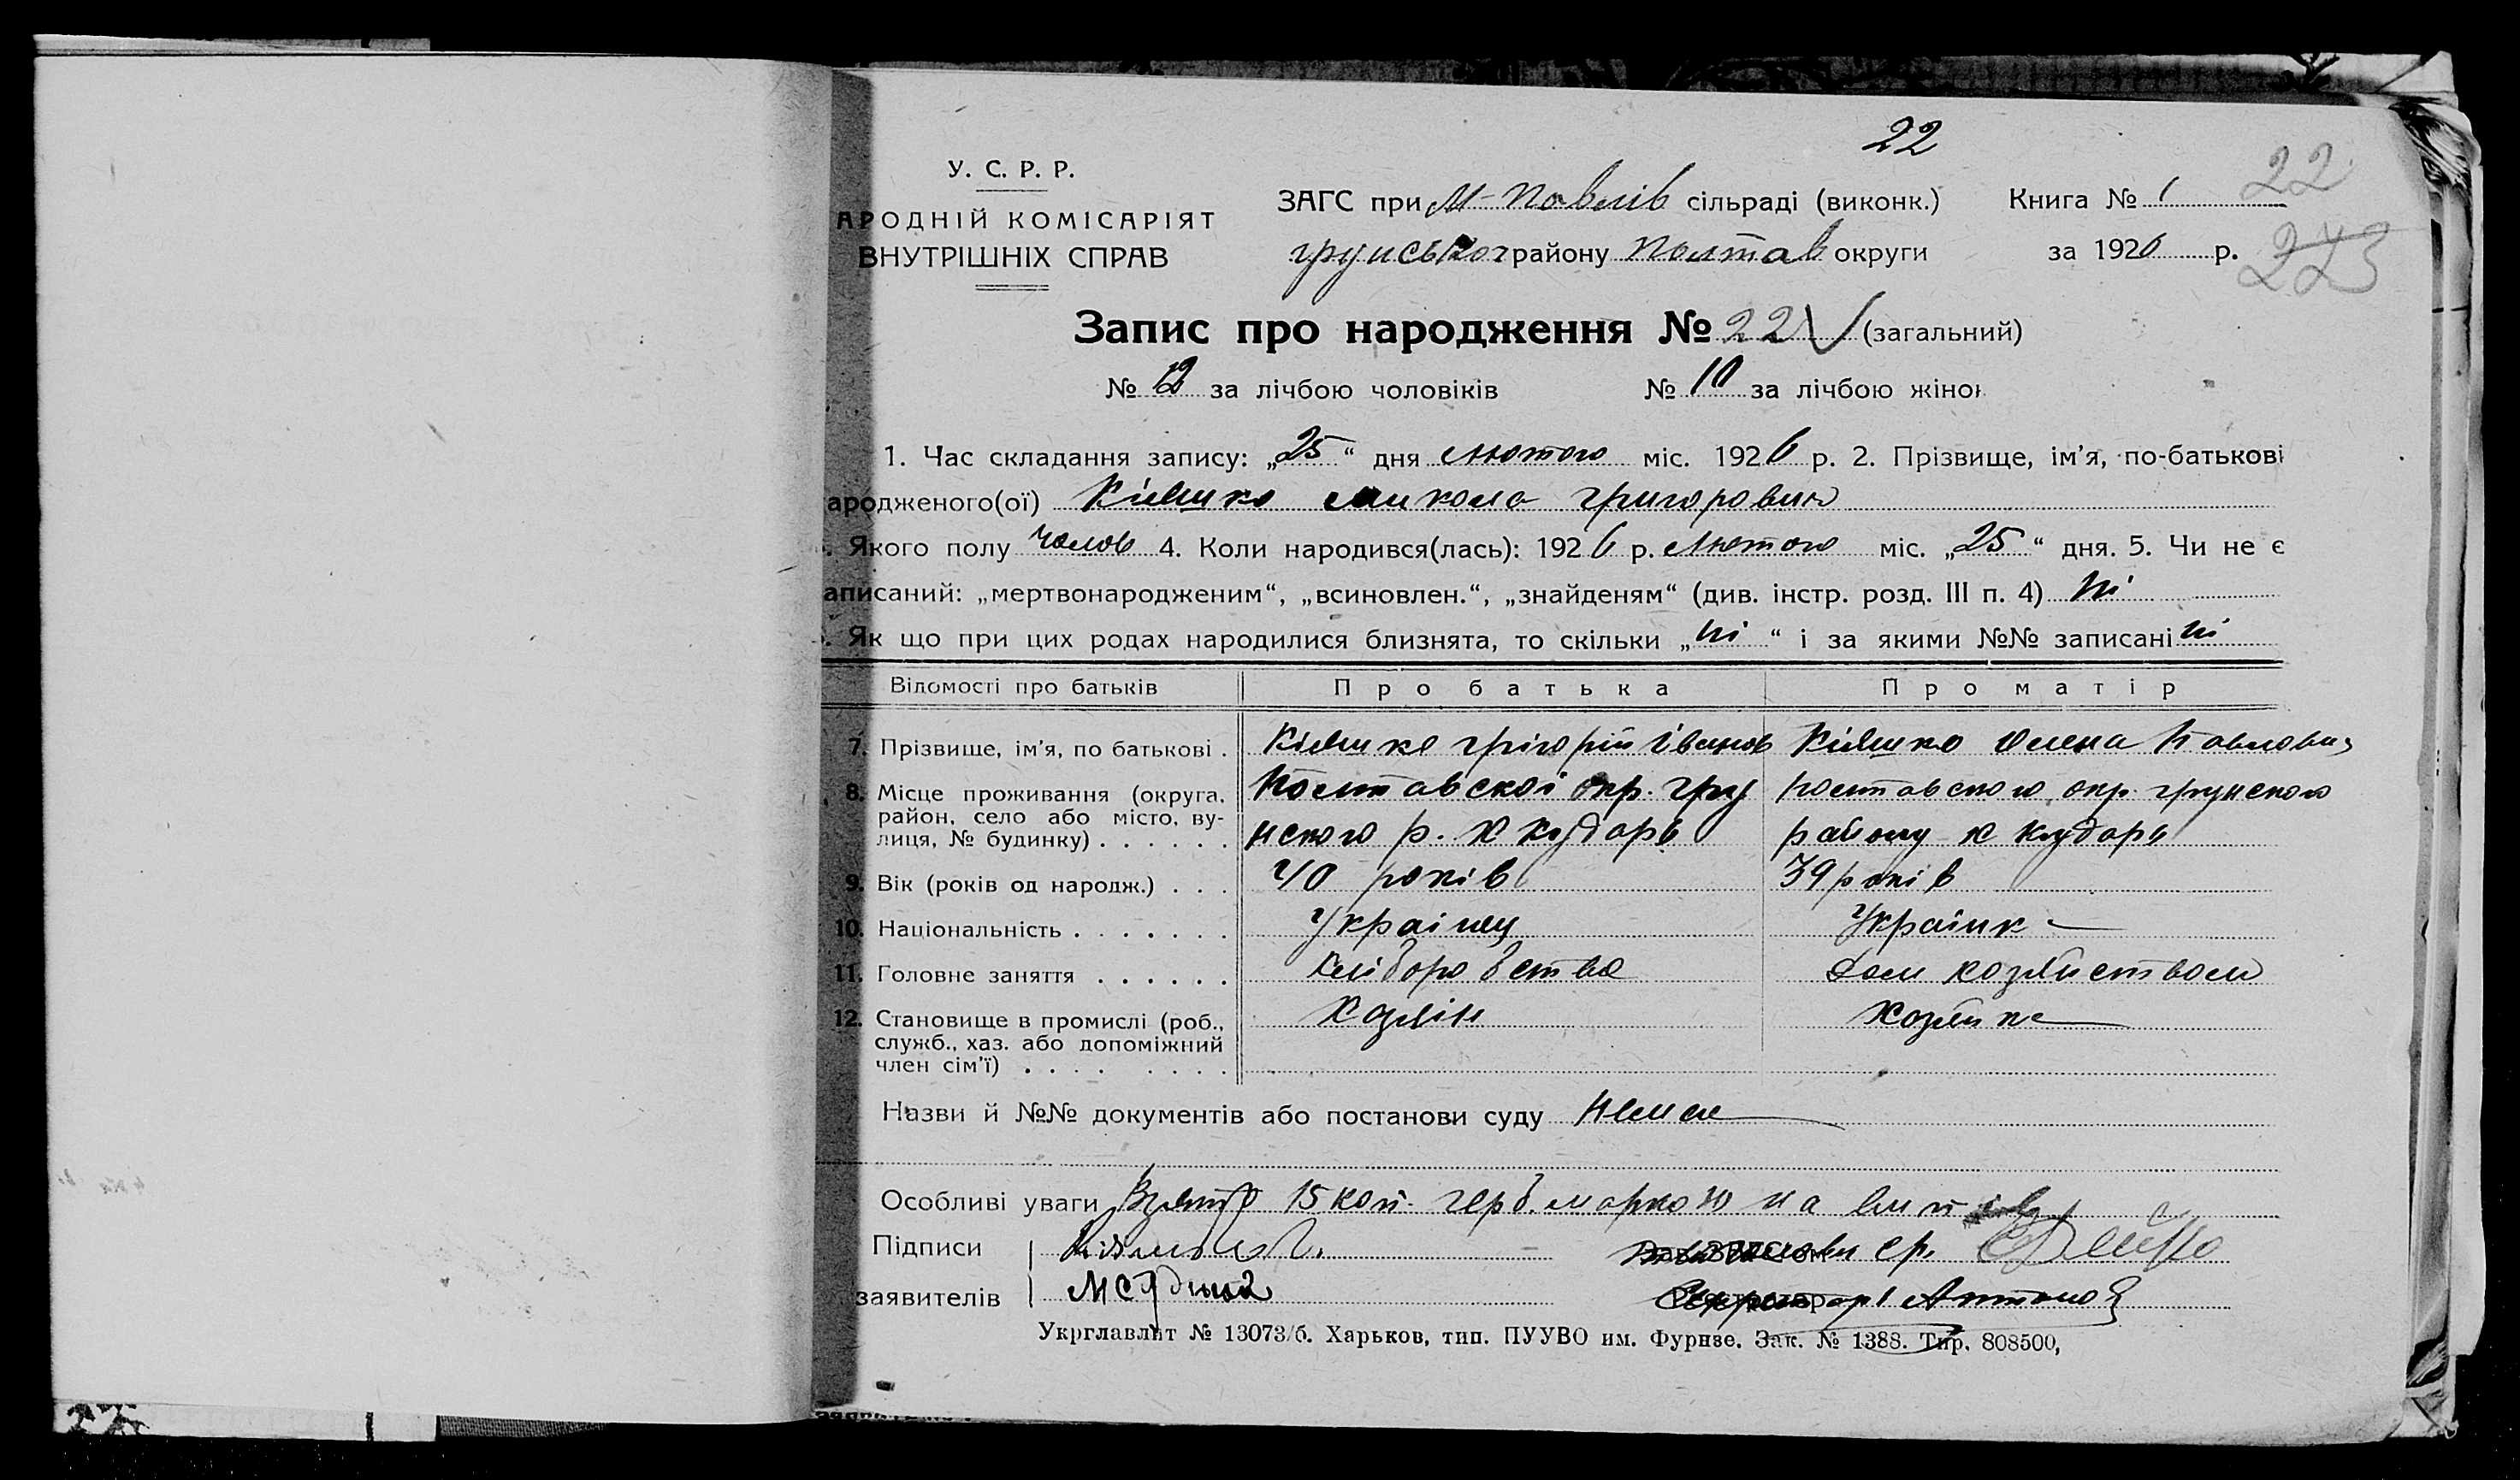 22
У. С. Р. Р.
АРОДНІЙ КОМІСАРІЯТ
ВНУТРІШНІХ СПРАВ
ЗАГС при М-Павлів сільраді (виконк.)
Книга № 1
22
грунського району Полтав округи
за 1926 р.
223
Запис про народження № 22 (загальний)
№ 12 за лічбою чоловіків № 10 за лічбою жінок
1. Час складання запису: „25“ дня лютого міс. 1926 р. 2. Прізвище, ім’я, по-батькові
ародженого(ої) Кіяшко Микола Григорович
. Якого полу Чолов 4. Коли народився(лась): 1926 р. Лютого міс. „25“ дня. 5. Чи не є
аписаний: „мертвонародженим“, „всиновлен.“, „знайденям“ (див. інстр. розд. III п. 4) Ні
. Як що при цих родах народилися близнята, то скільки „Ні“ і за якими №№ записані Ні
Відомості про батьків Про батька Про матір
7. Прізвище, ім’я, по батькові . Кіяшко Грігорій Іванов Кіяшко Олена Павлов
8. Місце проживання (округа, район, село або місто, вулиця, № будинку) . . . . . .
Полтавскої окр. Гру
нского р. х
Полтавского окр. грунского
району х
9. Вік (років од народж.) . . . 40 років 39 років
10. Національність . . . . . . . Українец Українк
11. Головне заняття . . . . . . Хліборобство Дом хозяйством
12. Становище в промислі (роб., служб., хаз. або допоміжний член сім’ї) . . . . . . . . Хозяін Хозяйка
Назви й №№ документів або постанови суду Немає
Особливі уваги Взято 15 коп. герб. маркою на
Підписи
заявителів
Укрглавліт № 13073/б. Харьков, тип. ПУУВО им. Фрунзе. Зак. № 1388. Тир. 808500,